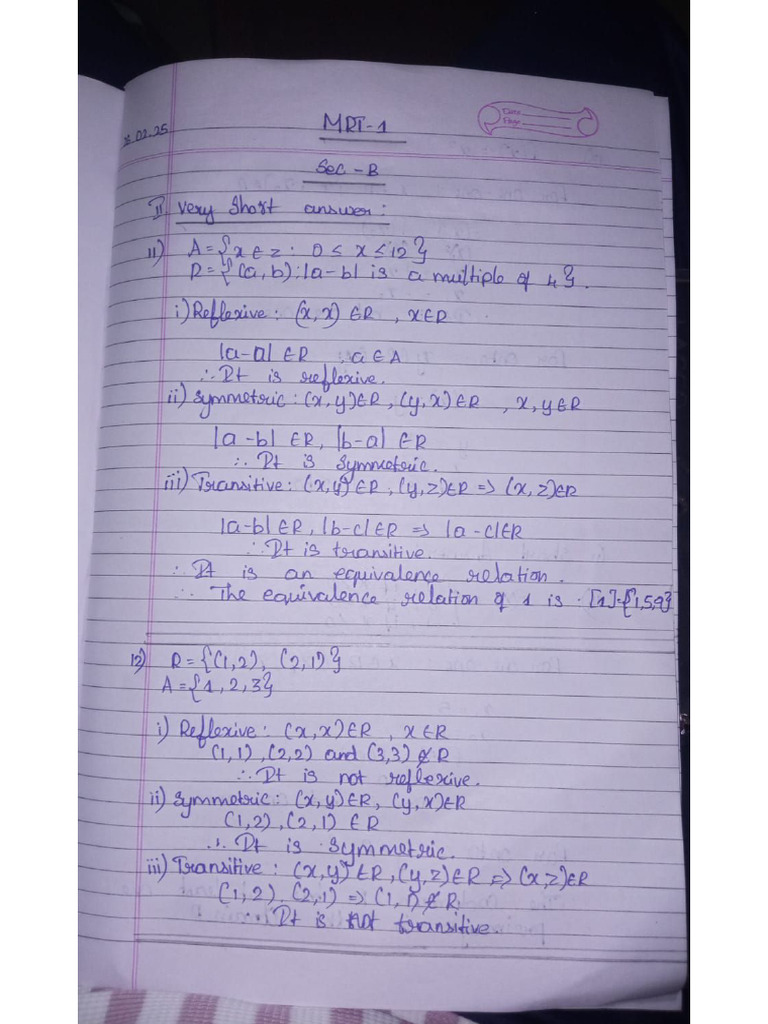 .02.25
MRT-1
Date
Page
Sec - B
II Very Short answer:
11) A = {x ∈ z : 0 ≤ x ≤ 12}
R = {(a, b) : |a-b| is a multiple of 4}.
i) Reflexive : (x, x) ∈ R , x ∈ R
|a-a| ∈ R , a ∈ A
∴ It is reflexive.
ii) Symmetric : (x, y) ∈ R , (y, x) ∈ R , x, y ∈ R
|a-b| ∈ R, |b-a| ∈ R
∴ It is symmetric.
iii) Transitive : (x, y) ∈ R , (y, z) ∈ R => (x, z) ∈ R
|a-b| ∈ R, |b-c| ∈ R => |a-c| ∈ R
∴ It is transitive.
∴ It is an equivalence relation.
∴ The equivalence relation of 1 is . [1] = {1,5,9}
12) R = {(1,2), (2,1)}
A = {1, 2, 3}
i) Reflexive : (x, x) ∈ R , x ∈ R
(1,1) , (2,2) and (3,3) ∉ R
∴ It is not reflexive.
ii) Symmetric : (x, y) ∈ R, (y, x) ∈ R
(1,2) , (2,1) ∈ R
∴ It is symmetric.
iii) Transitive : (x, y) ∈ R , (y, z) ∈ R => (x, z) ∈ R
(1,2) , (2,1) => (1,1) ∉ R.
∴ It is not transitive.